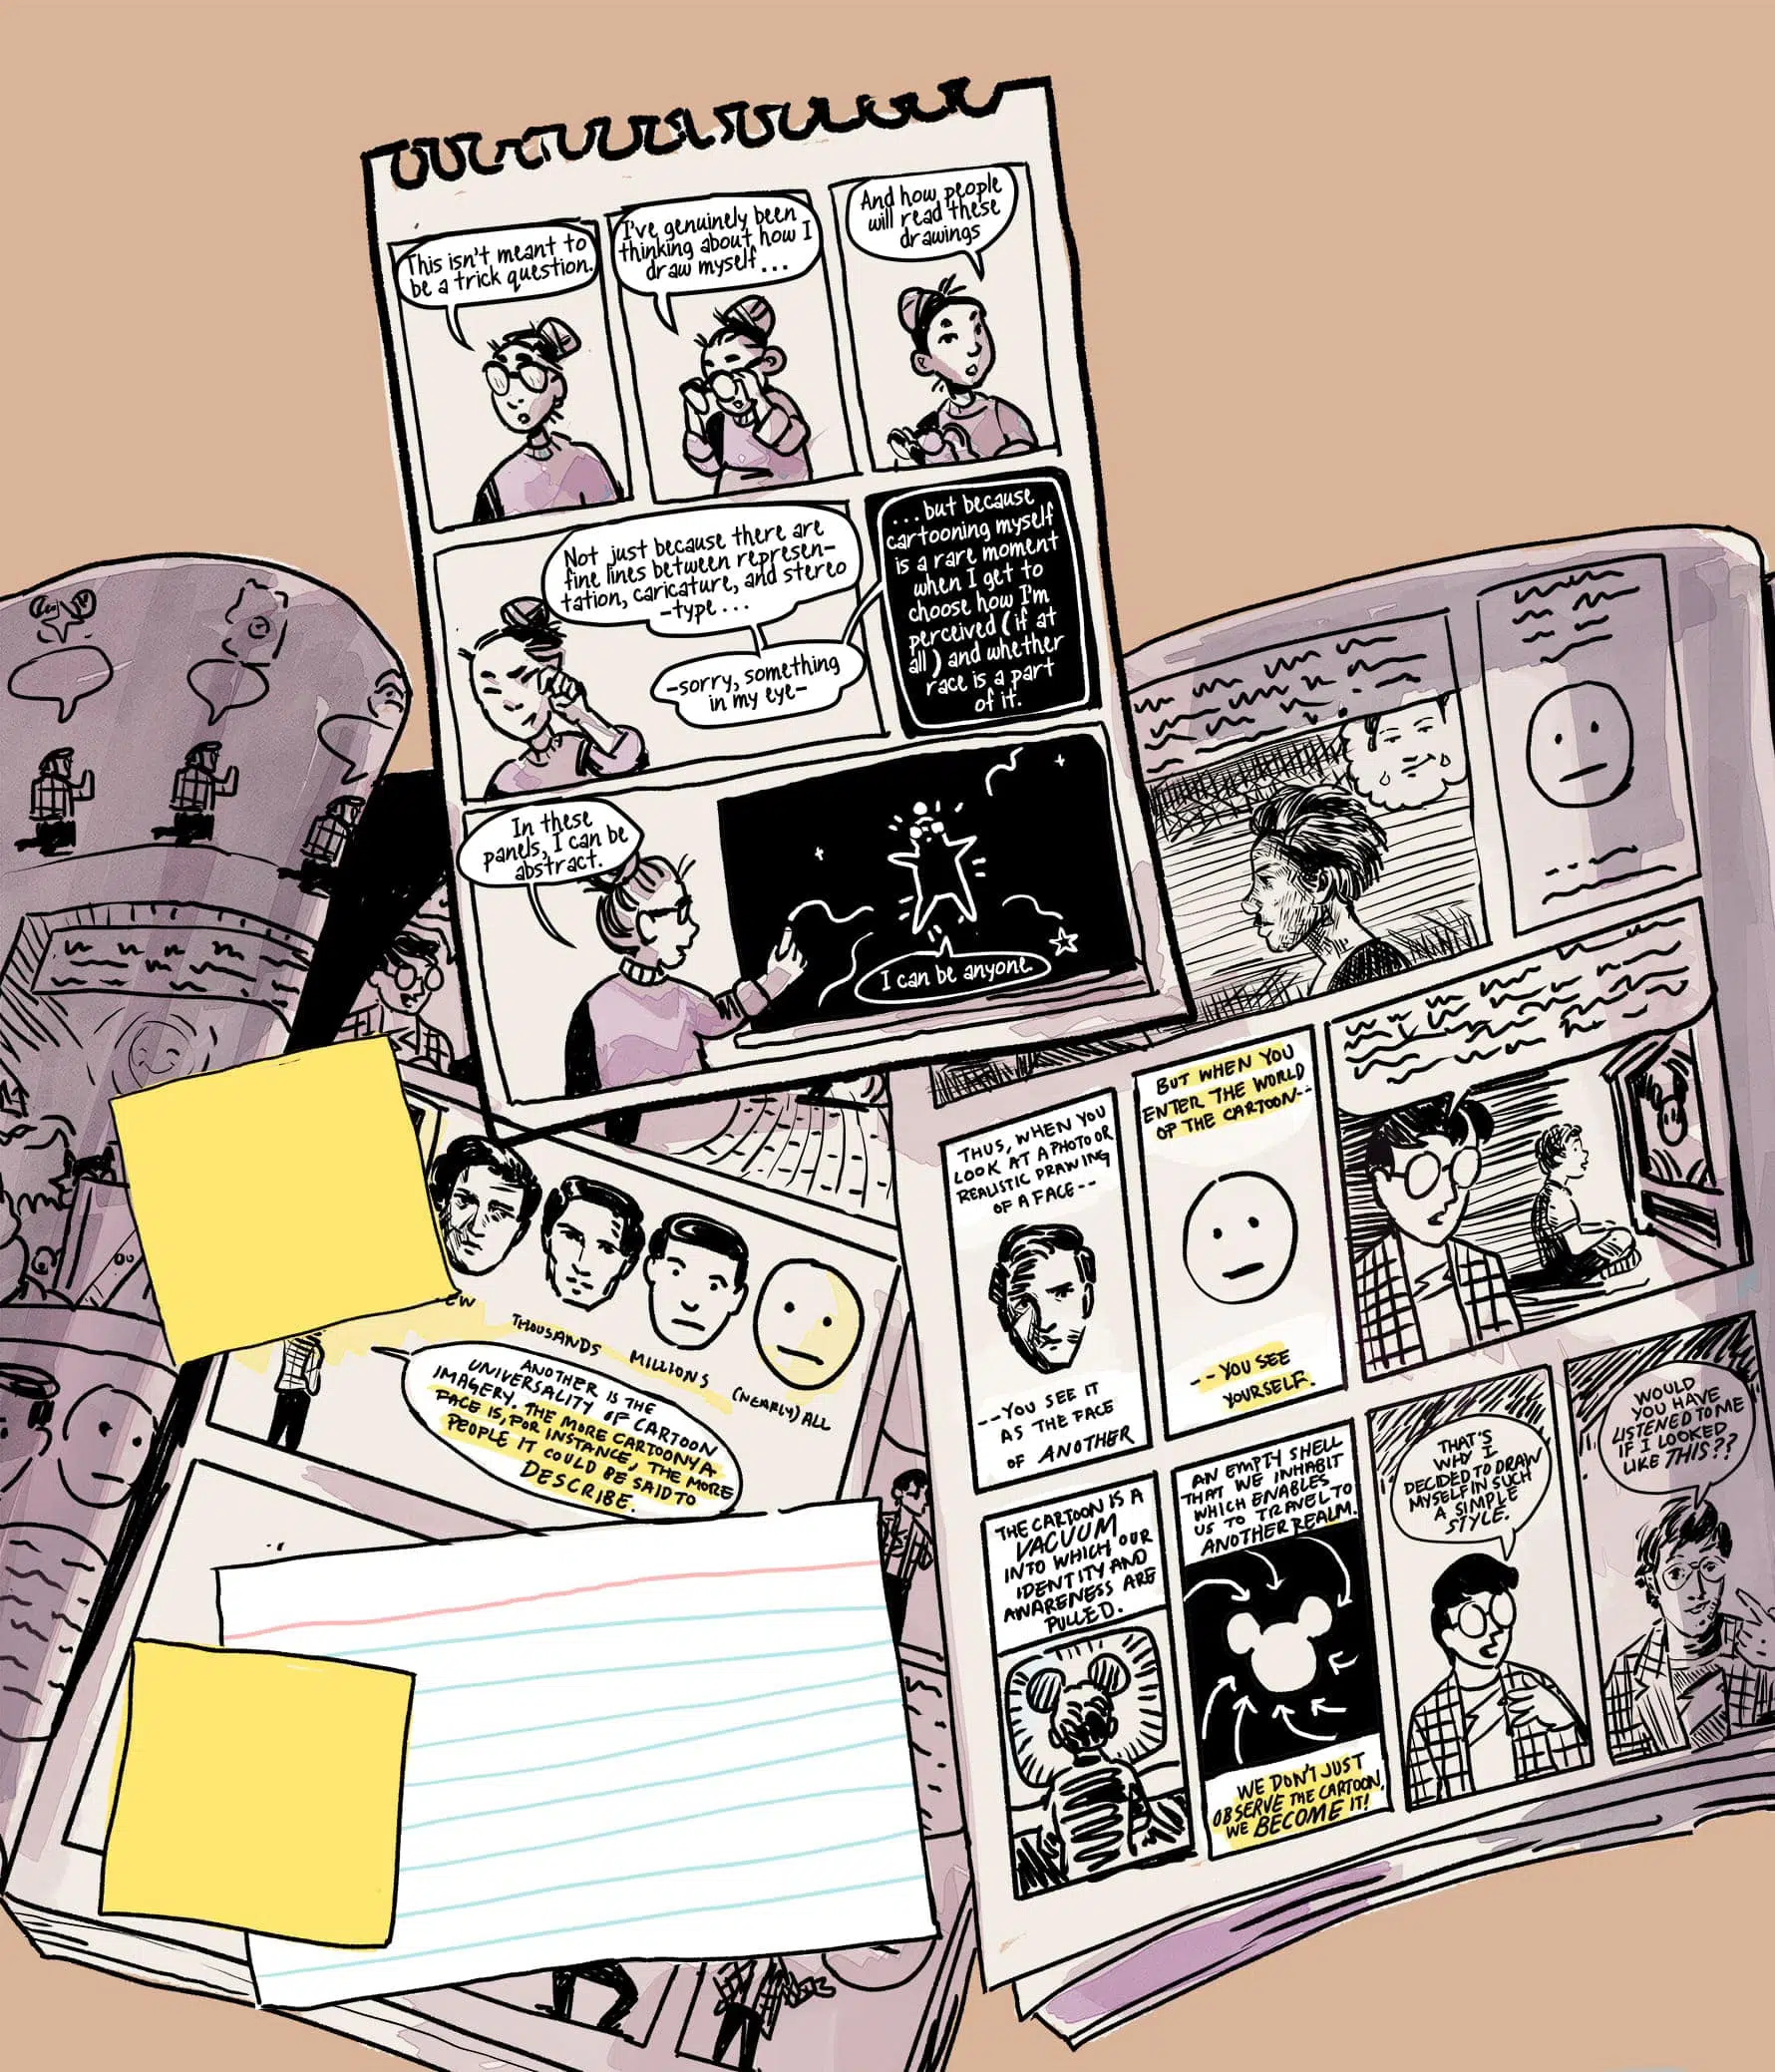 This isn't meant to
be a trick question.
I've genuinely been
thinking about how I
draw myself...
And how people
will read these
drawings
Not just because there are
fine lines between represen-
tation, caricature, and stereo
-type...
-sorry, something
in my eye-
...but because
cartooning myself
is a rare moment
when I get to
choose how I'm
perceived (if at
all) and whether
race is a part
of it.
In these
panels, I can be
abstract.
I can be anyone.
THOUSANDS
MILLIONS
(NEARLY) ALL
ANOTHER IS THE
UNIVERSALITY OF CARTOON
IMAGERY. THE MORE CARTOONY A
FACE IS, FOR INSTANCE, THE MORE
PEOPLE IT COULD BE SAID TO
DESCRIBE.
THUS, WHEN YOU
LOOK AT A PHOTO OR
REALISTIC DRAWING
OF A FACE--
--YOU SEE IT
AS THE FACE
OF ANOTHER
BUT WHEN YOU
ENTER THE WORLD
OF THE CARTOON--
--YOU SEE
YOURSELF.
THE CARTOON IS A
VACUUM
INTO WHICH OUR
IDENTITY AND
AWARENESS ARE
PULLED.
AN EMPTY SHELL
THAT WE INHABIT
WHICH ENABLES
US TO TRAVEL TO
ANOTHER REALM.
WE DON'T JUST
OBSERVE THE CARTOON,
WE BECOME IT!
THAT'S
WHY I
DECIDED TO DRAW
MYSELF IN SUCH
A SIMPLE
STYLE.
WOULD
YOU HAVE
LISTENED TO ME
IF I LOOKED
LIKE THIS??